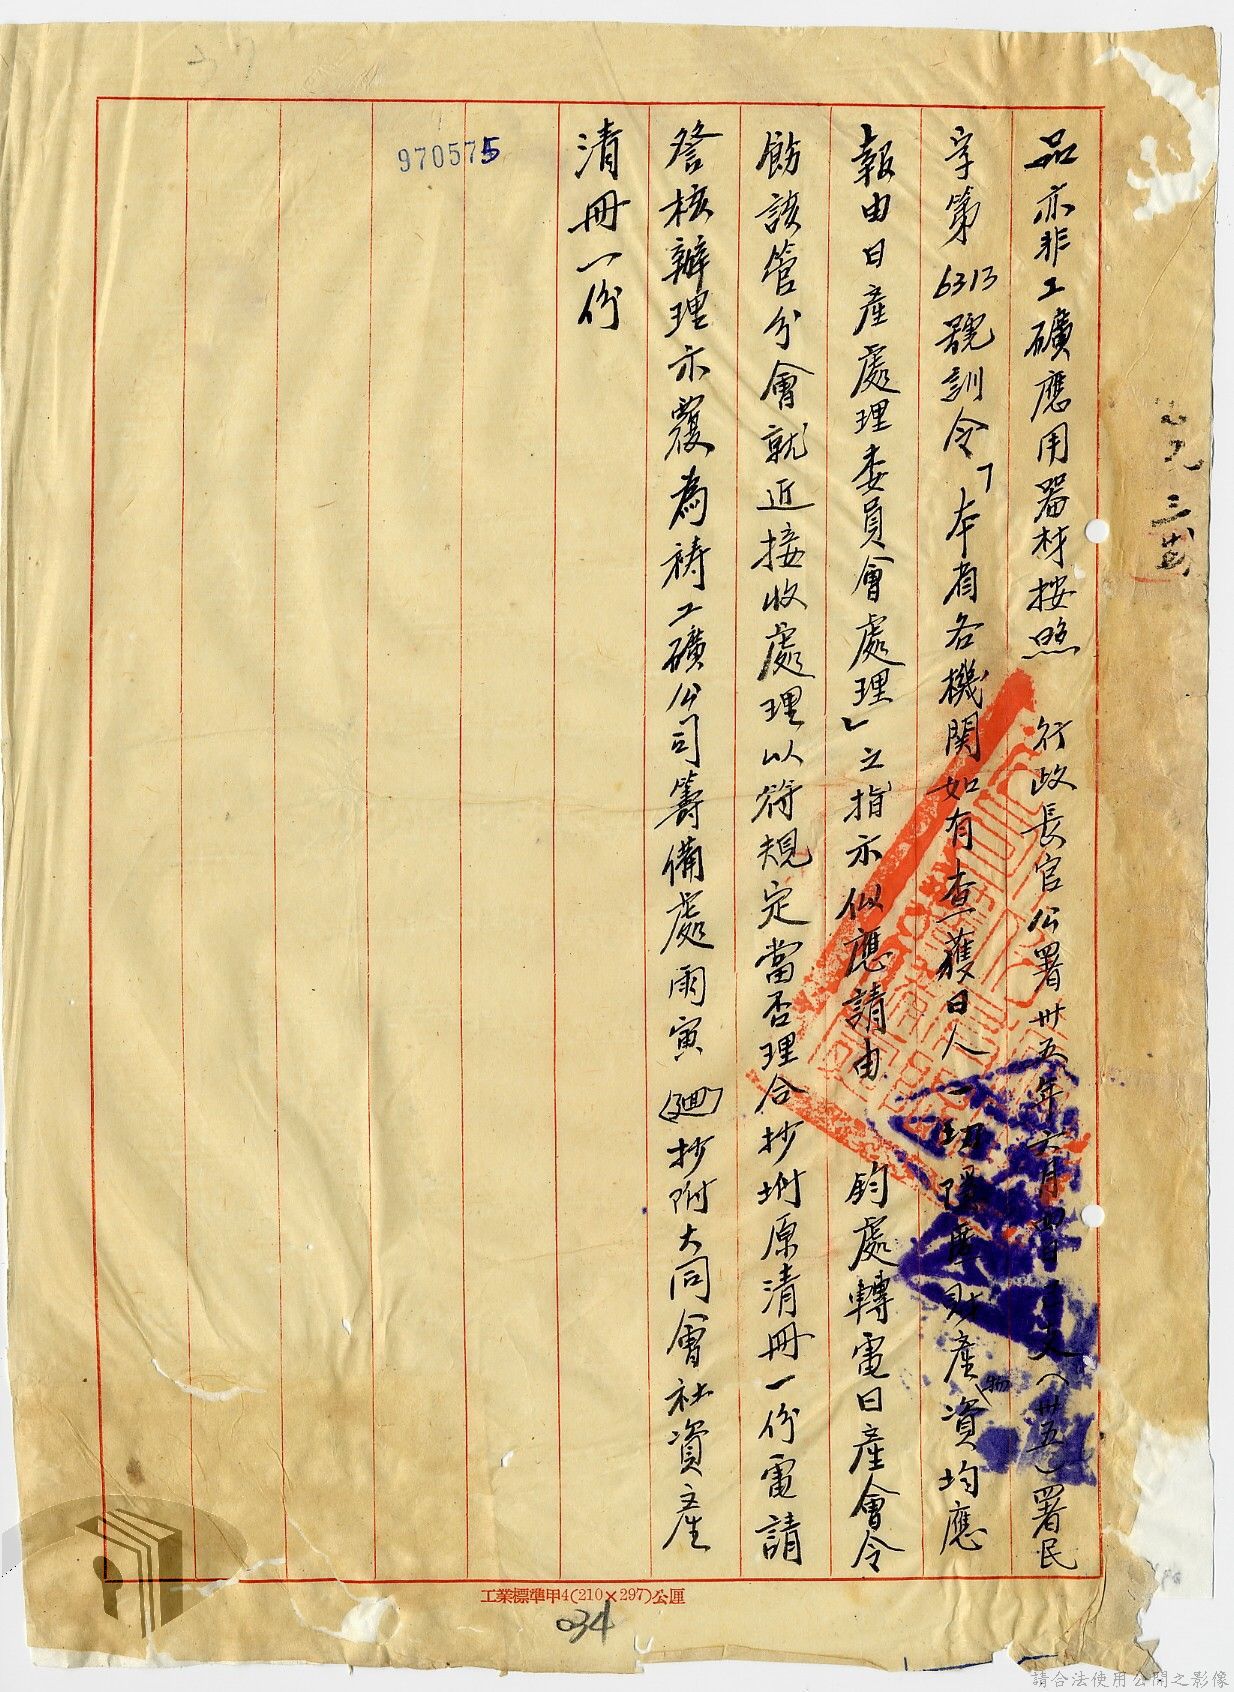 品亦非工礦應用器材按照 行政長官公署卅五年六月(卅五)署民
字第6313號訓令「本省各機關如有查獲日人一切隱匿財產物資均應
報由日產處理委員會處理」之指示似應請由 鈞處轉電日產會令
飭該管分會就近接收處理以符規定當否理合抄附原清冊一份電請
詧核辦理示覆為禱工礦公司籌備處雨寅(廻)抄附大同會社資產
清冊一份
970575
工業標準甲4(210×297)公厘
034
請合法使用公開之影像